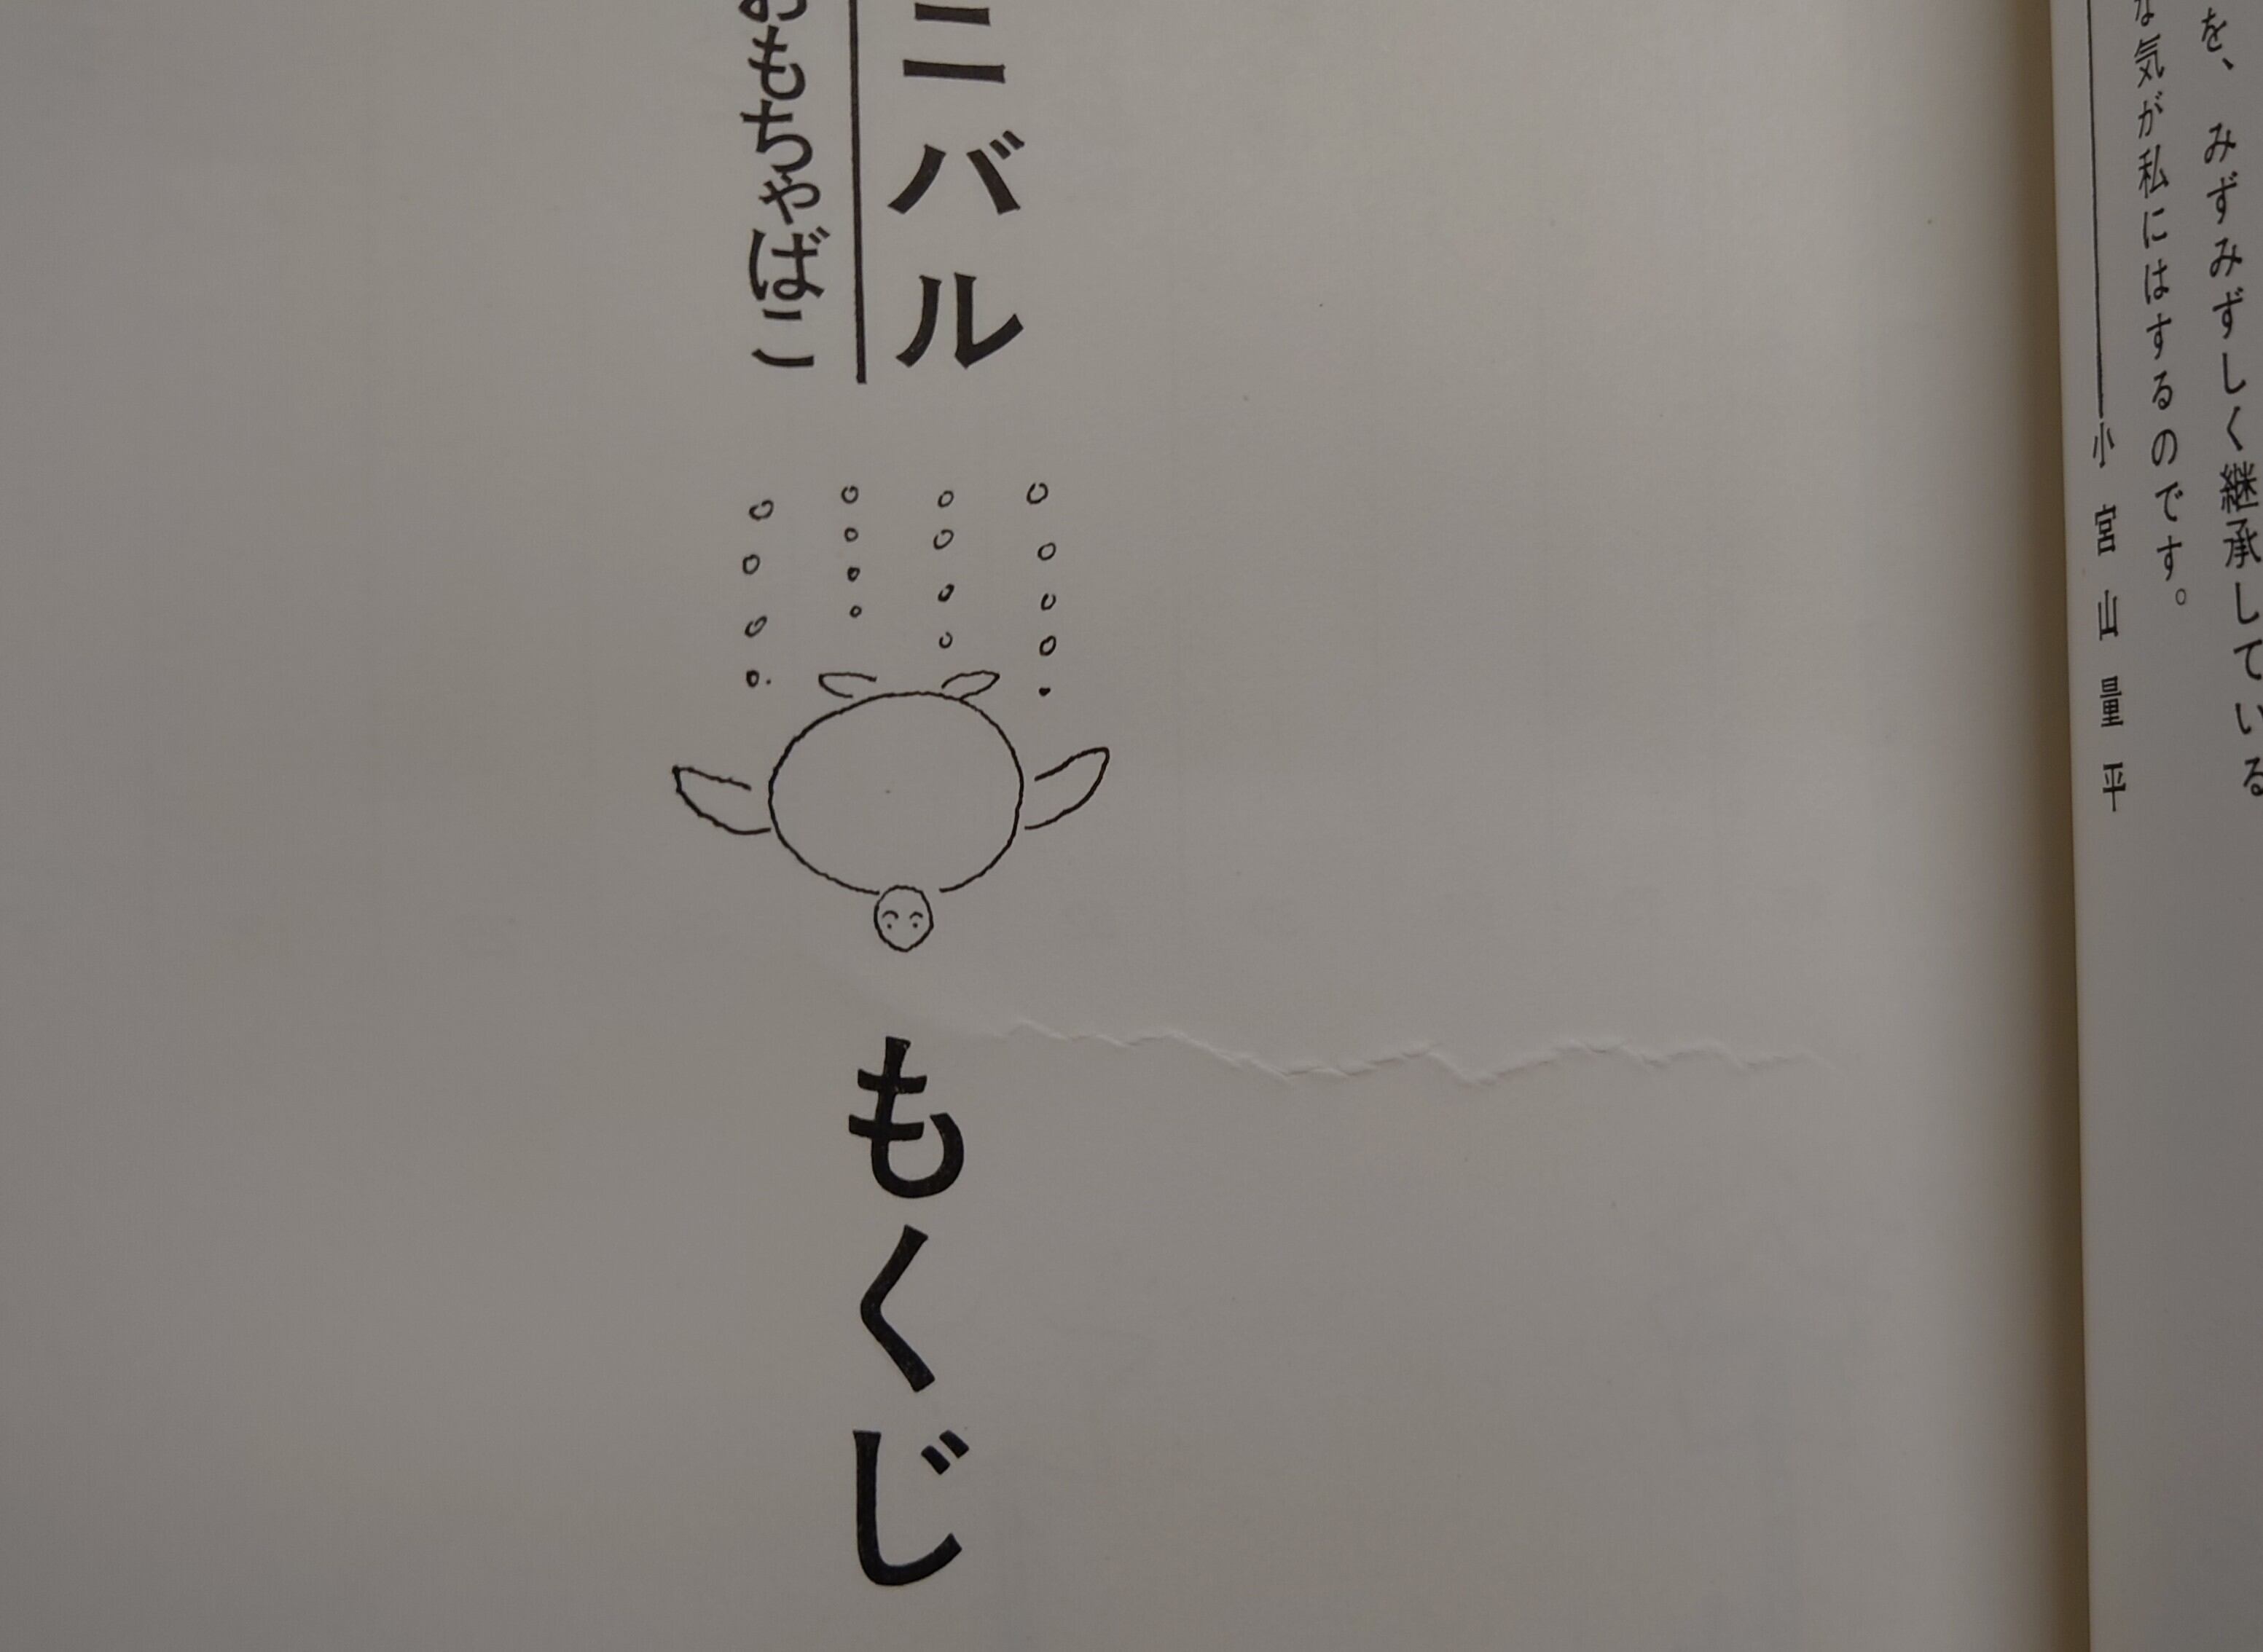 を、みずみずしく継承している
な気が私にはするのです。
小宮山量平
ニバル
おもちゃばこ
もくじ